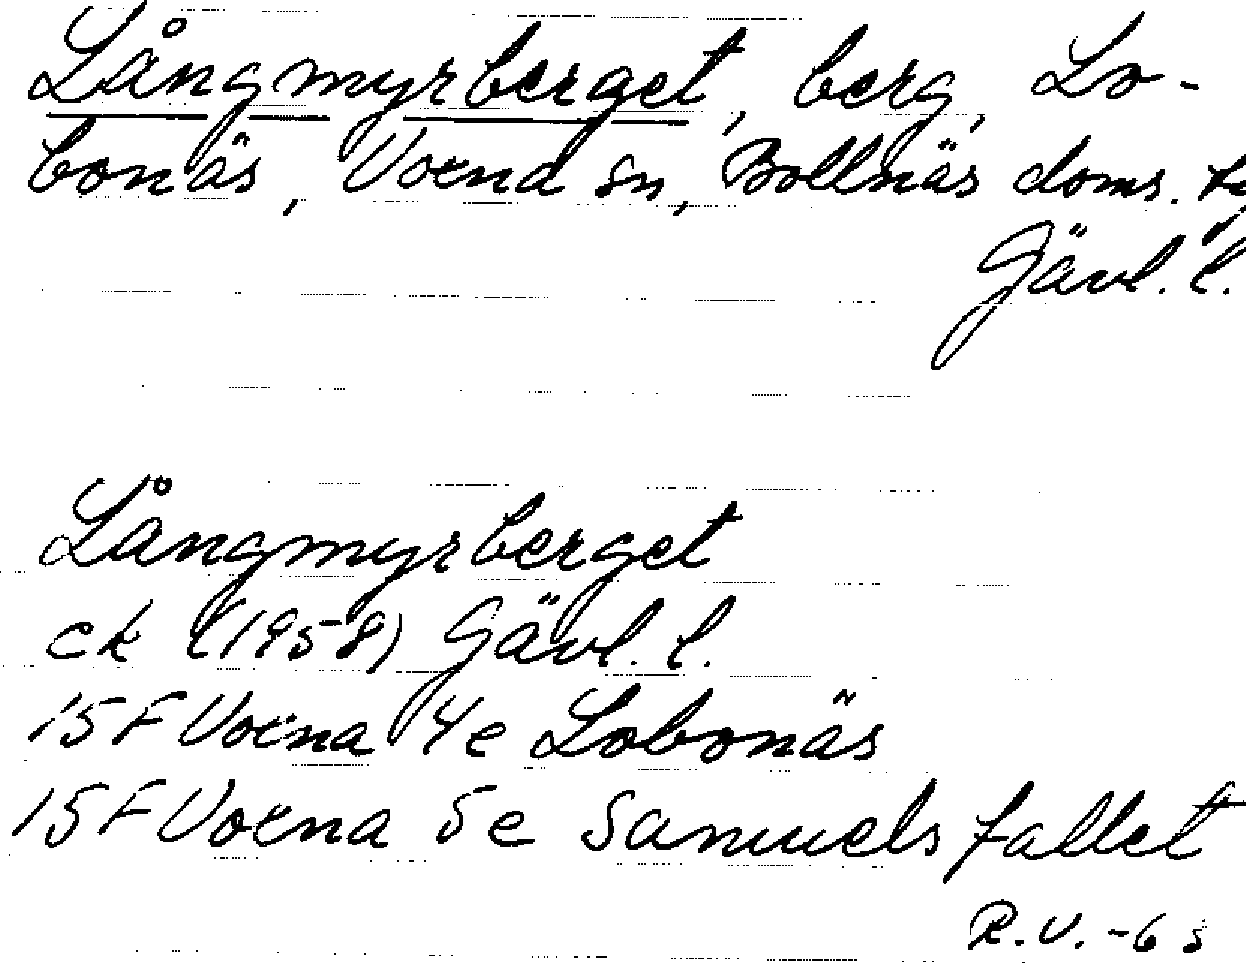 Långmyrberget, berg, Lo-
bonäs, Voxna sn, Bollnäs doms.
Gävl. l.
Långmyrberget
ek (1958) Gävl. l.
15F Voxna 4e Lobonäs
15F Voxna 5e Samuelsfallet
R.V. -6